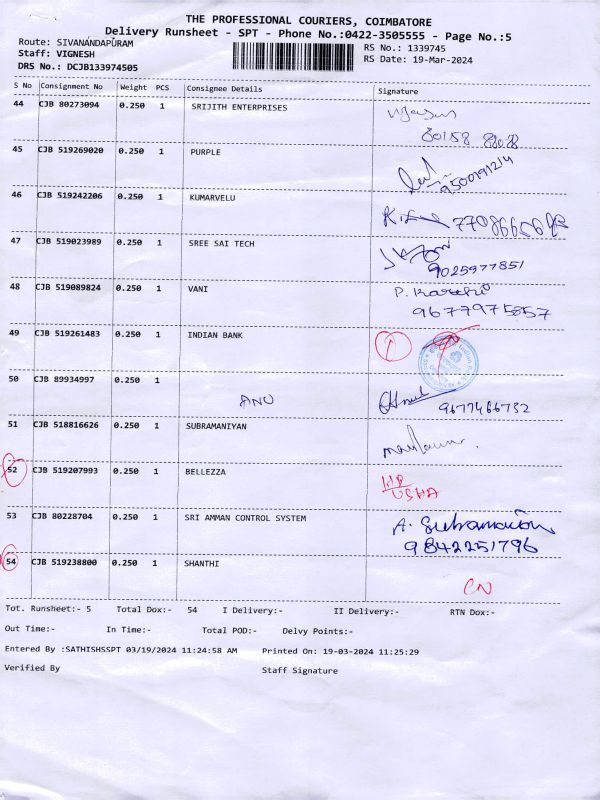 THE PROFESSIONAL COURIERS, COIMBATORE
Delivery Runsheet - SPT - Phone No.:0422-3505555 - Page No.:5
Route: SIVANANDAPURAM
RS No.: 1339745
Staff: VIGNESH
RS Date: 19-Mar-2024
DRS No.: DCJB133974505
S No Consignment No Weight PCS Consignee Details Signature
44 CJB 80273094 0.250 1 SRIJITH ENTERPRISES
80158
45 CJB 519269020 0.250 1 PURPLE
9500191214
46 CJB 519242206 0.250 1 KUMARVELU
47 CJB 519023989 0.250 1 SREE SAI TECH
9025977851
48 CJB 519089824 0.250 1 VANI
P.
9677975857
49 CJB 519261483 0.250 1 INDIAN BANK
50 CJB 89934997 0.250 1
ANU 9677466732
51 CJB 518816626 0.250 1 SUBRAMANIYAN
52 CJB 519207993 0.250 1 BELLEZZA
USHA
53 CJB 80228704 0.250 1 SRI AMMAN CONTROL SYSTEM
A. Subramanian
9842251796
54 CJB 519238800 0.250 1 SHANTHI
CN
Tot. Runsheet:- 5 Total Dox:- 54 I Delivery:- II Delivery:- RTN Dox:-
Out Time:- In Time:- Total POD:- Delvy Points:-
Entered By :SATHISHSSPT 03/19/2024 11:24:58 AM Printed On: 19-03-2024 11:25:29
Verified By Staff Signature